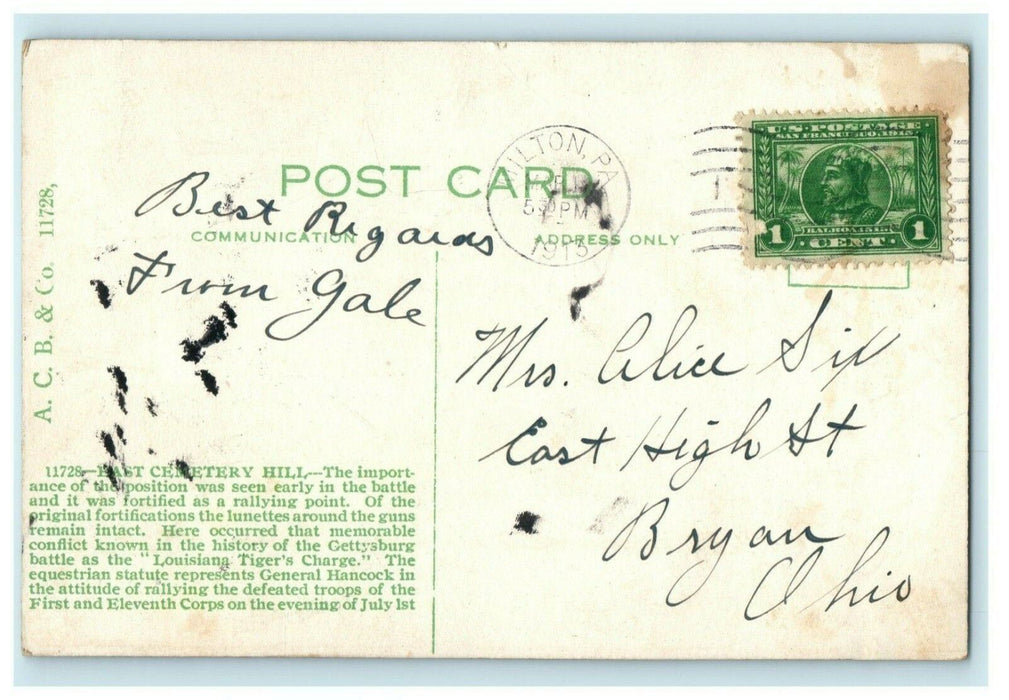 POST CARD
COMMUNICATION
ADDRESS ONLY
MILTON, PA
530PM
1915
U.S. POSTAGE
SAN FRANCISCO, 1915
BALBOA, 1513
1 CENT 1
A. C. B. & Co. 11728,
Best Regards
From Gale
Mrs. Alice Six
East High St
Bryan
Ohio
11728—EAST CEMETERY HILL—The import-
ance of the position was seen early in the battle
and it was fortified as a rallying point. Of the
original fortifications the lunettes around the guns
remain intact. Here occurred that memorable
conflict known in the history of the Gettysburg
battle as the "Louisiana Tiger's Charge." The
equestrian statute represents General Hancock in
the attitude of rallying the defeated troops of the
First and Eleventh Corps on the evening of July 1st